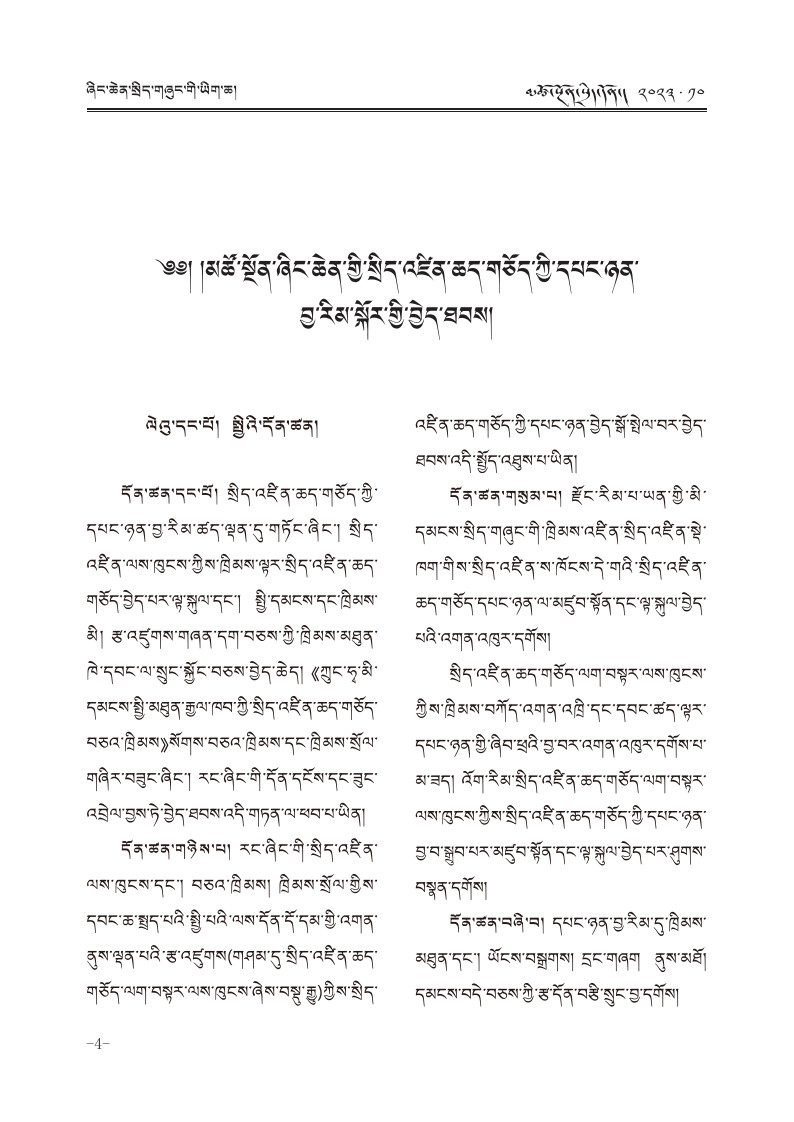 ཞིང་ཆེན་སྲིད་གཞུང་གི་ཡིག་ཆ།
༢༠༢༣ · ༡༠
༄༅། །མཚོ་སྔོན་ཞིང་ཆེན་གྱི་སྲིད་འཛིན་ཆད་གཅོད་ཀྱི་དཔང་ཉན་
བྱ་རིམ་སྐོར་གྱི་བྱེད་ཐབས།
ལེའུ་དང་པོ། སྤྱིའི་དོན་ཚན།
དོན་ཚན་དང་པོ། སྲིད་འཛིན་ཆད་གཅོད་ཀྱི་
དཔང་ཉན་བྱ་རིམ་ཚད་ལྡན་དུ་གཏོང་ཞིང་། སྲིད་
འཛིན་ལས་ཁུངས་ཀྱིས་ཁྲིམས་ལྟར་སྲིད་འཛིན་ཆད་
གཅོད་བྱེད་པར་ལྟ་སྐུལ་དང་། སྤྱི་དམངས་དང་ཁྲིམས་
མི། རྩ་འཛུགས་གཞན་དག་བཅས་ཀྱི་ཁྲིམས་མཐུན་
ཁེ་དབང་ལ་སྲུང་སྐྱོང་བཅས་བྱེད་ཆེད། 《ཀྲུང་ཧྭ་མི་
དམངས་སྤྱི་མཐུན་རྒྱལ་ཁབ་ཀྱི་སྲིད་འཛིན་ཆད་གཅོད་
བཅའ་ཁྲིམས》སོགས་བཅའ་ཁྲིམས་དང་ཁྲིམས་སྲོལ་
གཞིར་བཟུང་ཞིང་། རང་ཞིང་གི་དོན་དངོས་དང་ཟུང་
འབྲེལ་བྱས་ཏེ་བྱེད་ཐབས་འདི་གཏན་ལ་ཕབ་པ་ཡིན།
དོན་ཚན་གཉིས་པ། རང་ཞིང་གི་སྲིད་འཛིན་
ལས་ཁུངས་དང་། བཅའ་ཁྲིམས། ཁྲིམས་སྲོལ་གྱིས་
དབང་ཆ་སྤྲད་པའི་སྤྱི་པའི་ལས་དོན་དོ་དམ་གྱི་འགན་
ནུས་ལྡན་པའི་རྩ་འཛུགས(གཤམ་དུ་སྲིད་འཛིན་ཆད་
གཅོད་ལག་བསྟར་ལས་ཁུངས་ཞེས་བསྡུ་རྒྱུ)ཀྱིས་སྲིད་
འཛིན་ཆད་གཅོད་ཀྱི་དཔང་ཉན་བྱེད་སྒོ་སྤེལ་བར་བྱེད་
ཐབས་འདི་སྤྱོད་འཐུས་པ་ཡིན།
དོན་ཚན་གསུམ་པ། རྫོང་རིམ་པ་ཡན་གྱི་མི་
དམངས་སྲིད་གཞུང་གི་ཁྲིམས་འཛིན་སྲིད་འཛིན་སྡེ་
ཁག་གིས་སྲིད་འཛིན་ས་ཁོངས་དེ་གའི་སྲིད་འཛིན་
ཆད་གཅོད་དཔང་ཉན་ལ་མཛུབ་སྟོན་དང་ལྟ་སྐུལ་བྱེད་
པའི་འགན་འཁུར་དགོས།
སྲིད་འཛིན་ཆད་གཅོད་ལག་བསྟར་ལས་ཁུངས་
ཀྱིས་ཁྲིམས་བཀོད་འགན་འཁྲི་དང་དབང་ཚད་ལྟར་
དཔང་ཉན་གྱི་ཞིབ་ཕྲའི་བྱ་བར་འགན་འཁུར་དགོས་པ་
མ་ཟད། འོག་རིམ་སྲིད་འཛིན་ཆད་གཅོད་ལག་བསྟར་
ལས་ཁུངས་ཀྱིས་སྲིད་འཛིན་ཆད་གཅོད་ཀྱི་དཔང་ཉན་
བྱ་བ་སྒྲུབ་པར་མཛུབ་སྟོན་དང་ལྟ་སྐུལ་བྱེད་པར་ཤུགས་
བསྣན་དགོས།
དོན་ཚན་བཞི་བ། དཔང་ཉན་བྱ་རིམ་དུ་ཁྲིམས་
མཐུན་དང་། ཡོངས་བསྒྲགས། དྲང་གཞག ནུས་མཐོ།
དམངས་བདེ་བཅས་ཀྱི་རྩ་དོན་བརྩི་སྲུང་བྱ་དགོས།
-4-